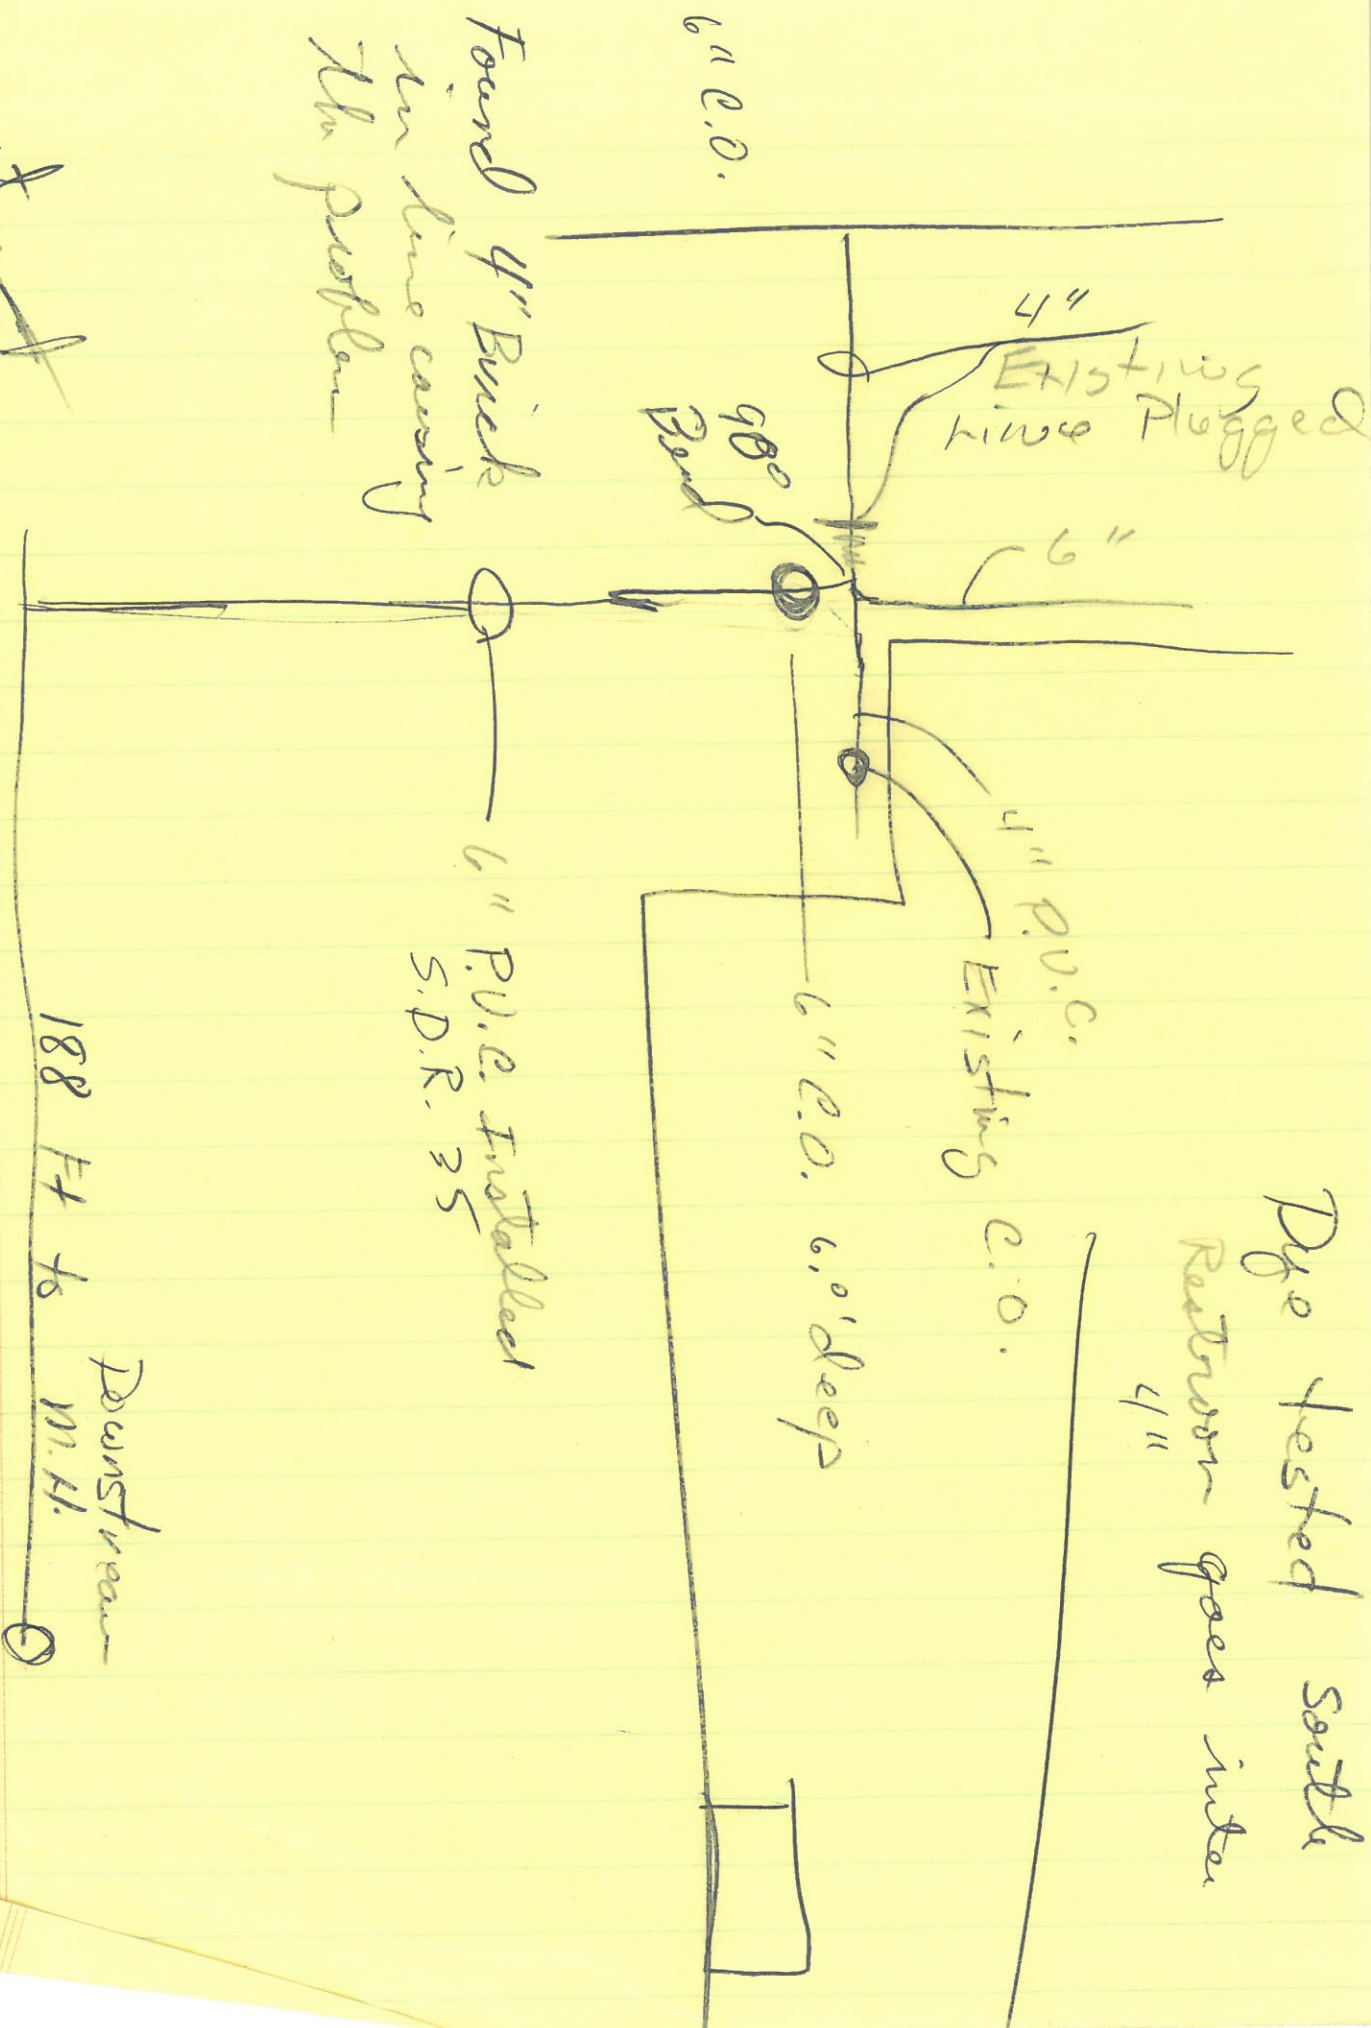 Dye tested South
Restroom goes into
4"
4"
Existing
Line Plugged
6"
4" P.V.C.
Existing C.O.
6" C.O. 6.0' deep
90°
Bend
6" C.O.
6" P.V.C. Installed
S.D.R. 35
Found 4" Brick
in line causing
the problem
Downstream
188 Ft to M.H.